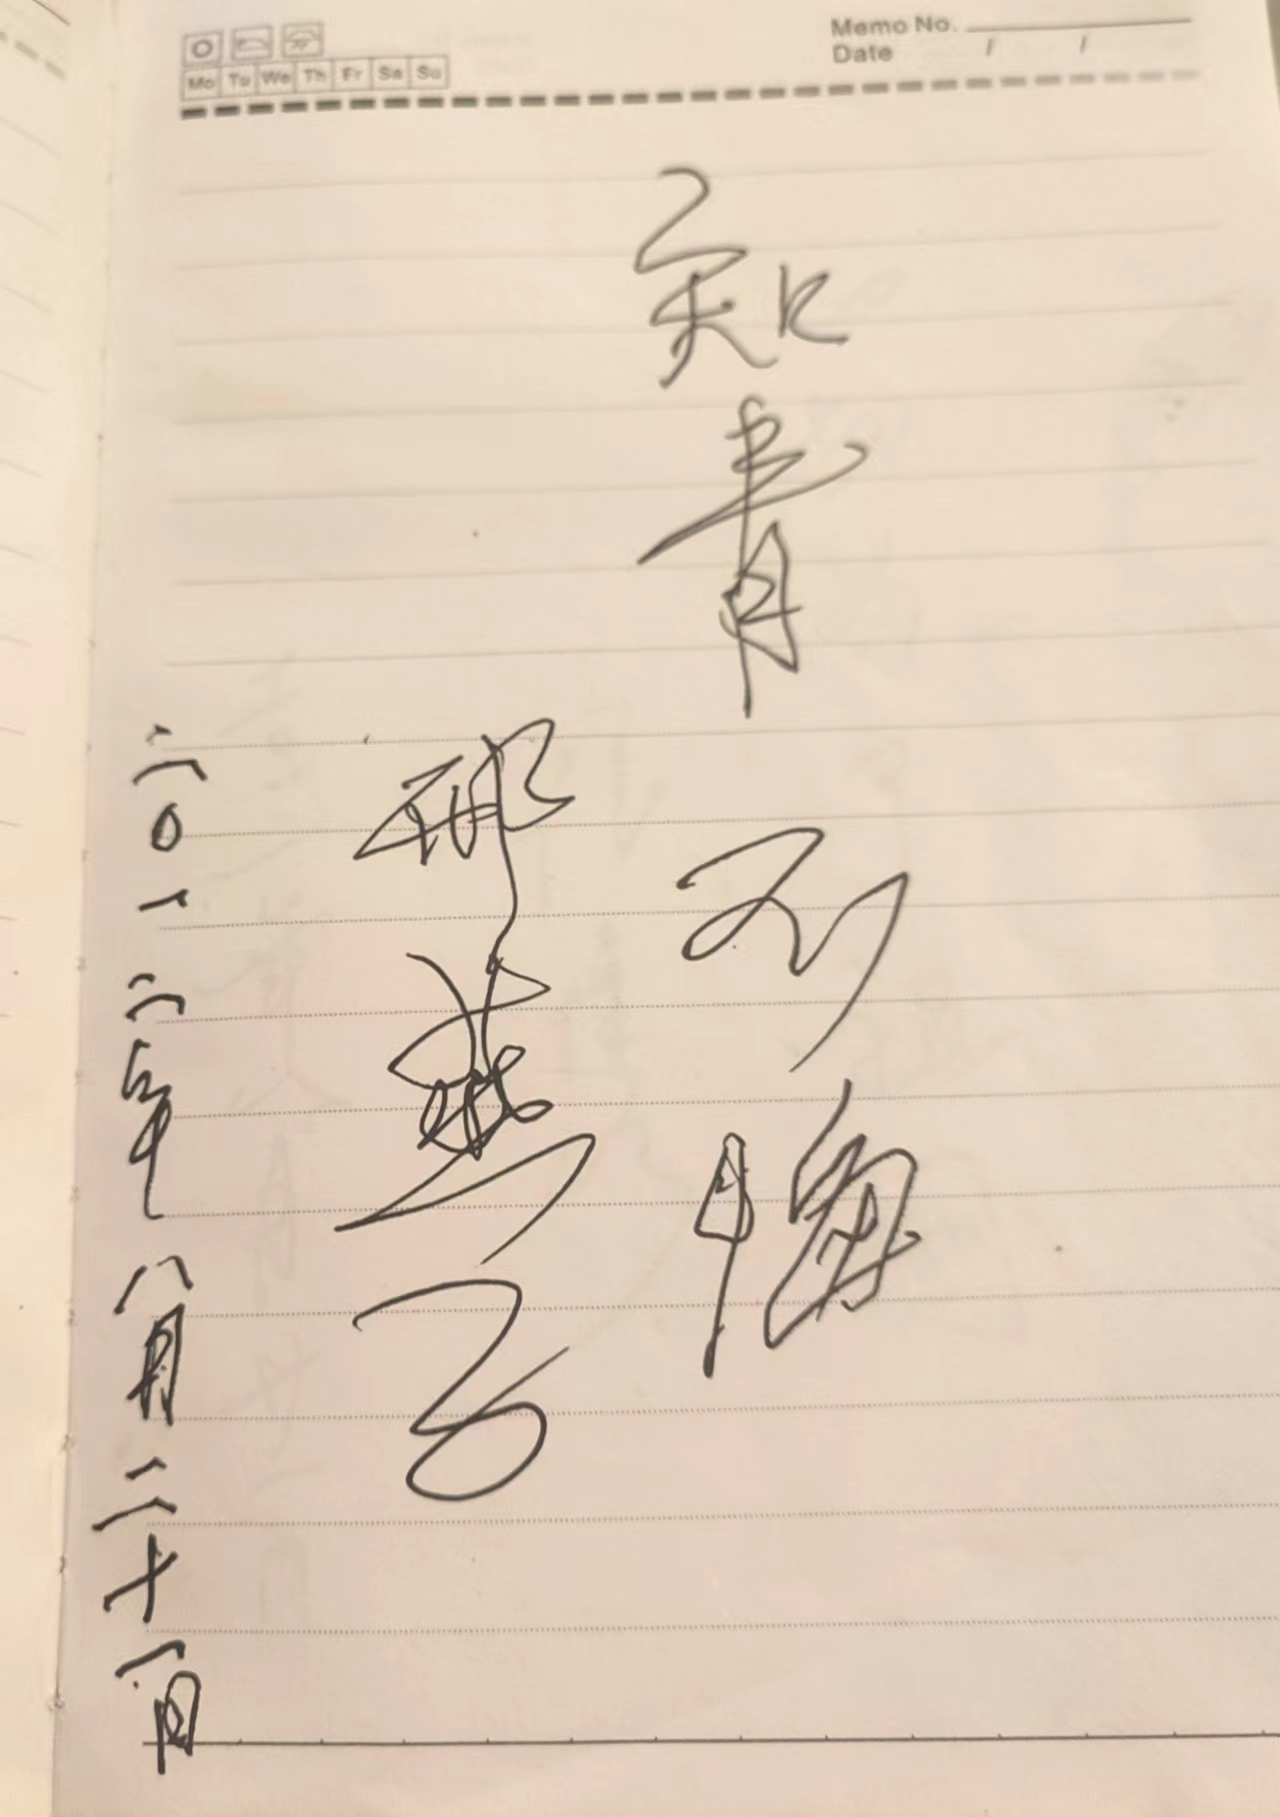 Memo No.
Date / /
Mo Tu We Th Fr Sa Su
知青
不悔
邢燕子
二〇一二年八月二十一日